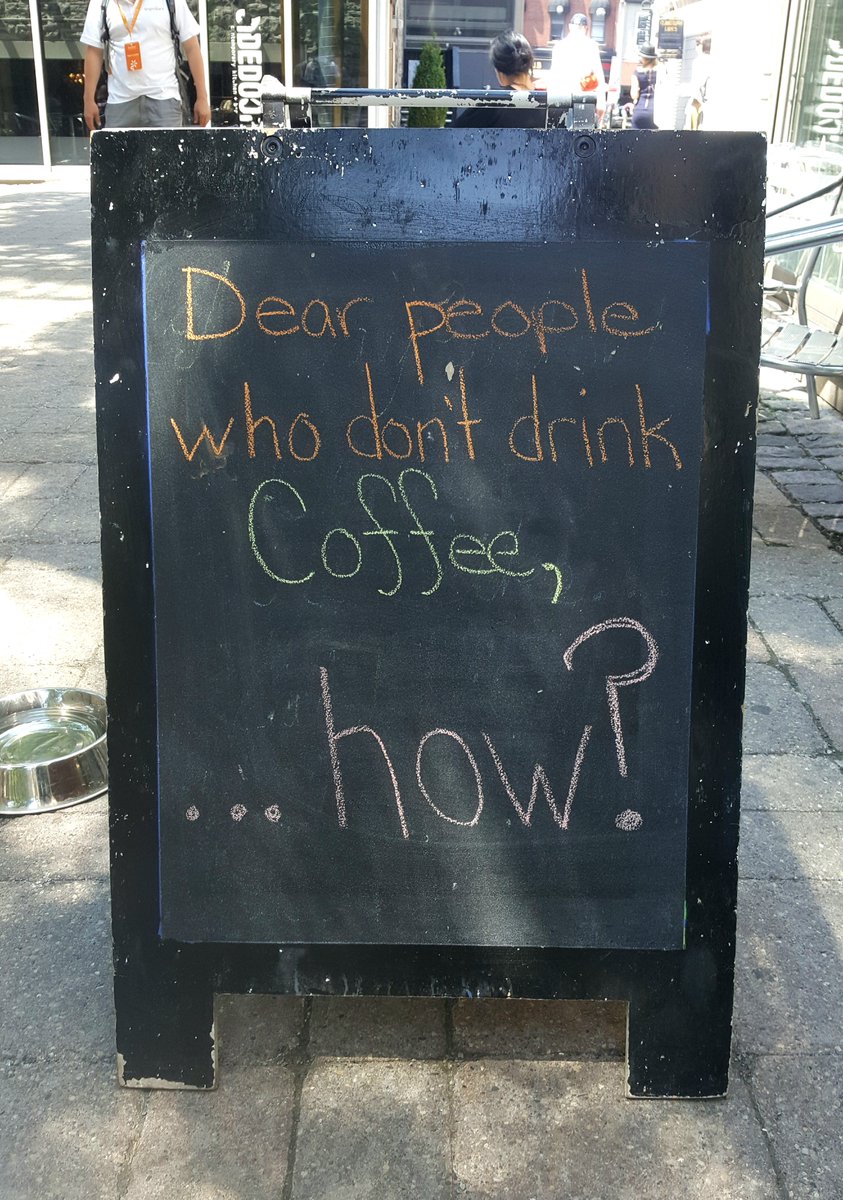 Dear people
who don't drink
Coffee,
... how?